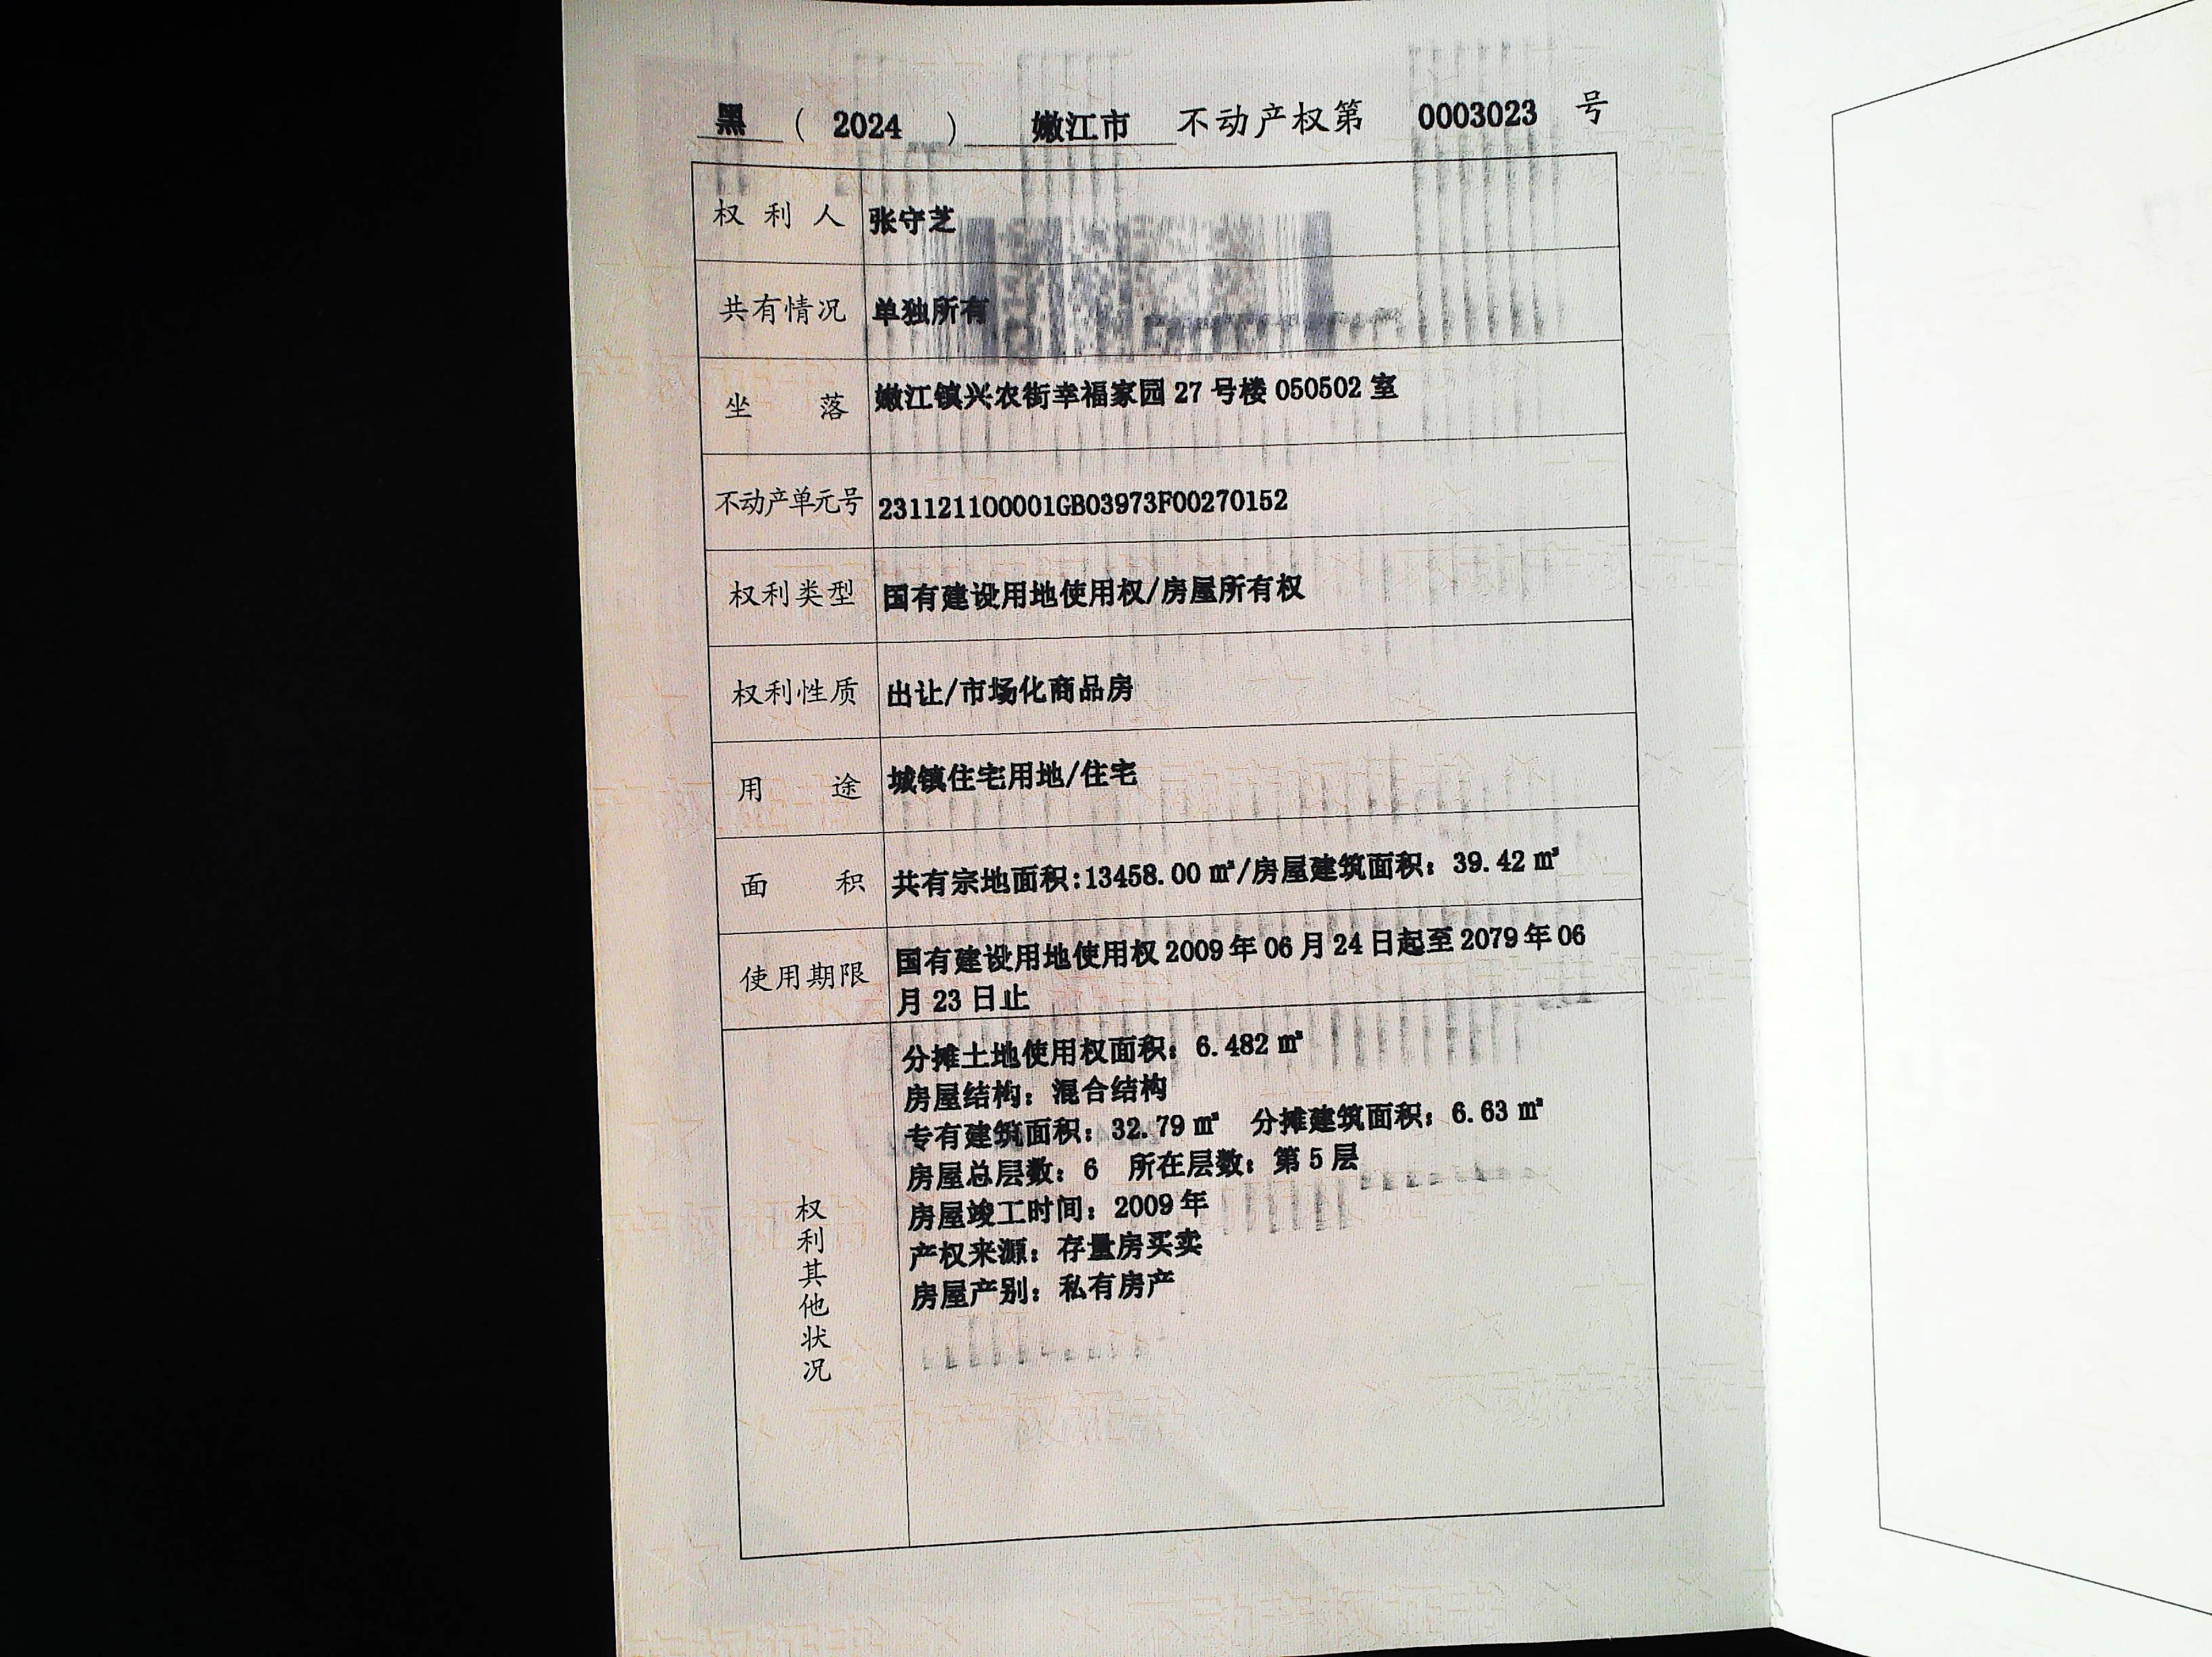 黑 ( 2024 ) 嫩江市 不动产权第 0003023 号
权利人 张守芝
共有情况 单独所有
坐落 嫩江镇兴农街幸福家园 27 号楼 050502 室
不动产单元号 231121100001GB03973F00270152
权利类型 国有建设用地使用权/房屋所有权
权利性质 出让/市场化商品房
用途 城镇住宅用地/住宅
面积 共有宗地面积:13458.00 ㎡/房屋建筑面积：39.42 ㎡
使用期限 国有建设用地使用权 2009 年 06 月 24 日起至 2079 年 06
月 23 日止
权利其他状况
分摊土地使用权面积：6.482 ㎡
房屋结构：混合结构
专有建筑面积：32.79 ㎡ 分摊建筑面积：6.63 ㎡
房屋总层数：6 所在层数：第 5 层
房屋竣工时间：2009 年
产权来源：存量房买卖
房屋产别：私有房产